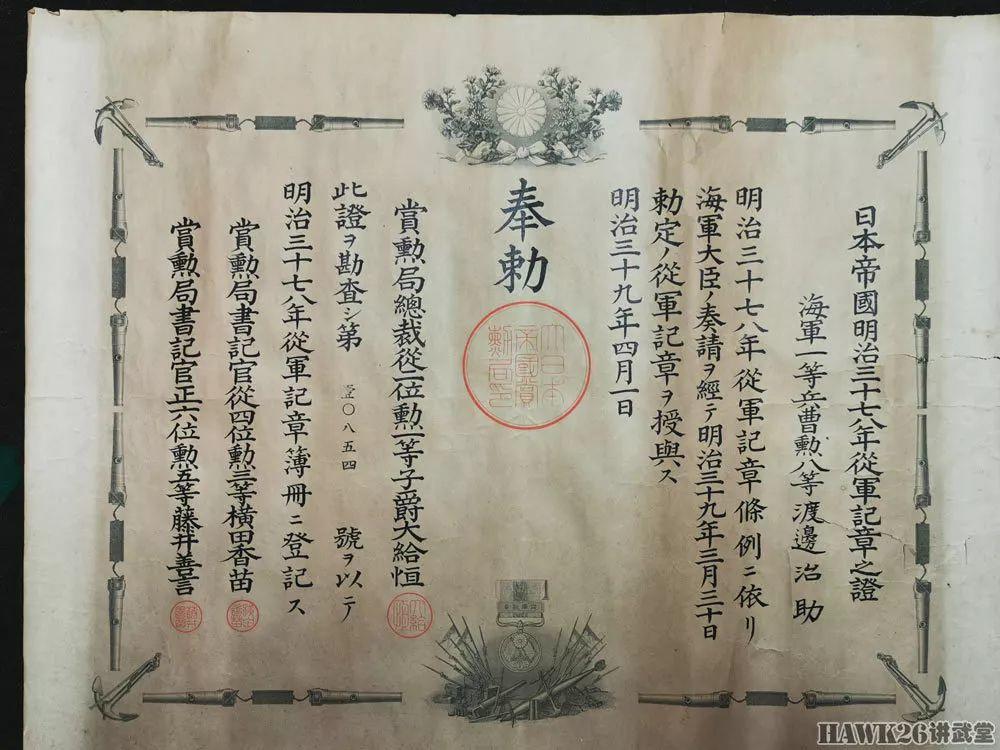 日本帝國明治三十七八年從軍記章之證
海軍一等兵曹勲八等渡邊治助
明治三十七八年從軍記章條例ニ依リ
海軍大臣ノ奏請ヲ經テ明治三十九年三月三十日
勅定ノ從軍記章ヲ授與ス
明治三十九年四月一日
奉勅
大日本
帝國賞
勲局印
賞勲局總裁從二位勲一等子爵大給恒
此證ヲ勘査シ第壹〇八五四號ヲ以テ
明治三十七八年從軍記章簿冊ニ登記ス
賞勲局書記官從四位勲三等横田香苗
賞勲局書記官正六位勲五等藤井善言
HAWK26讲武堂